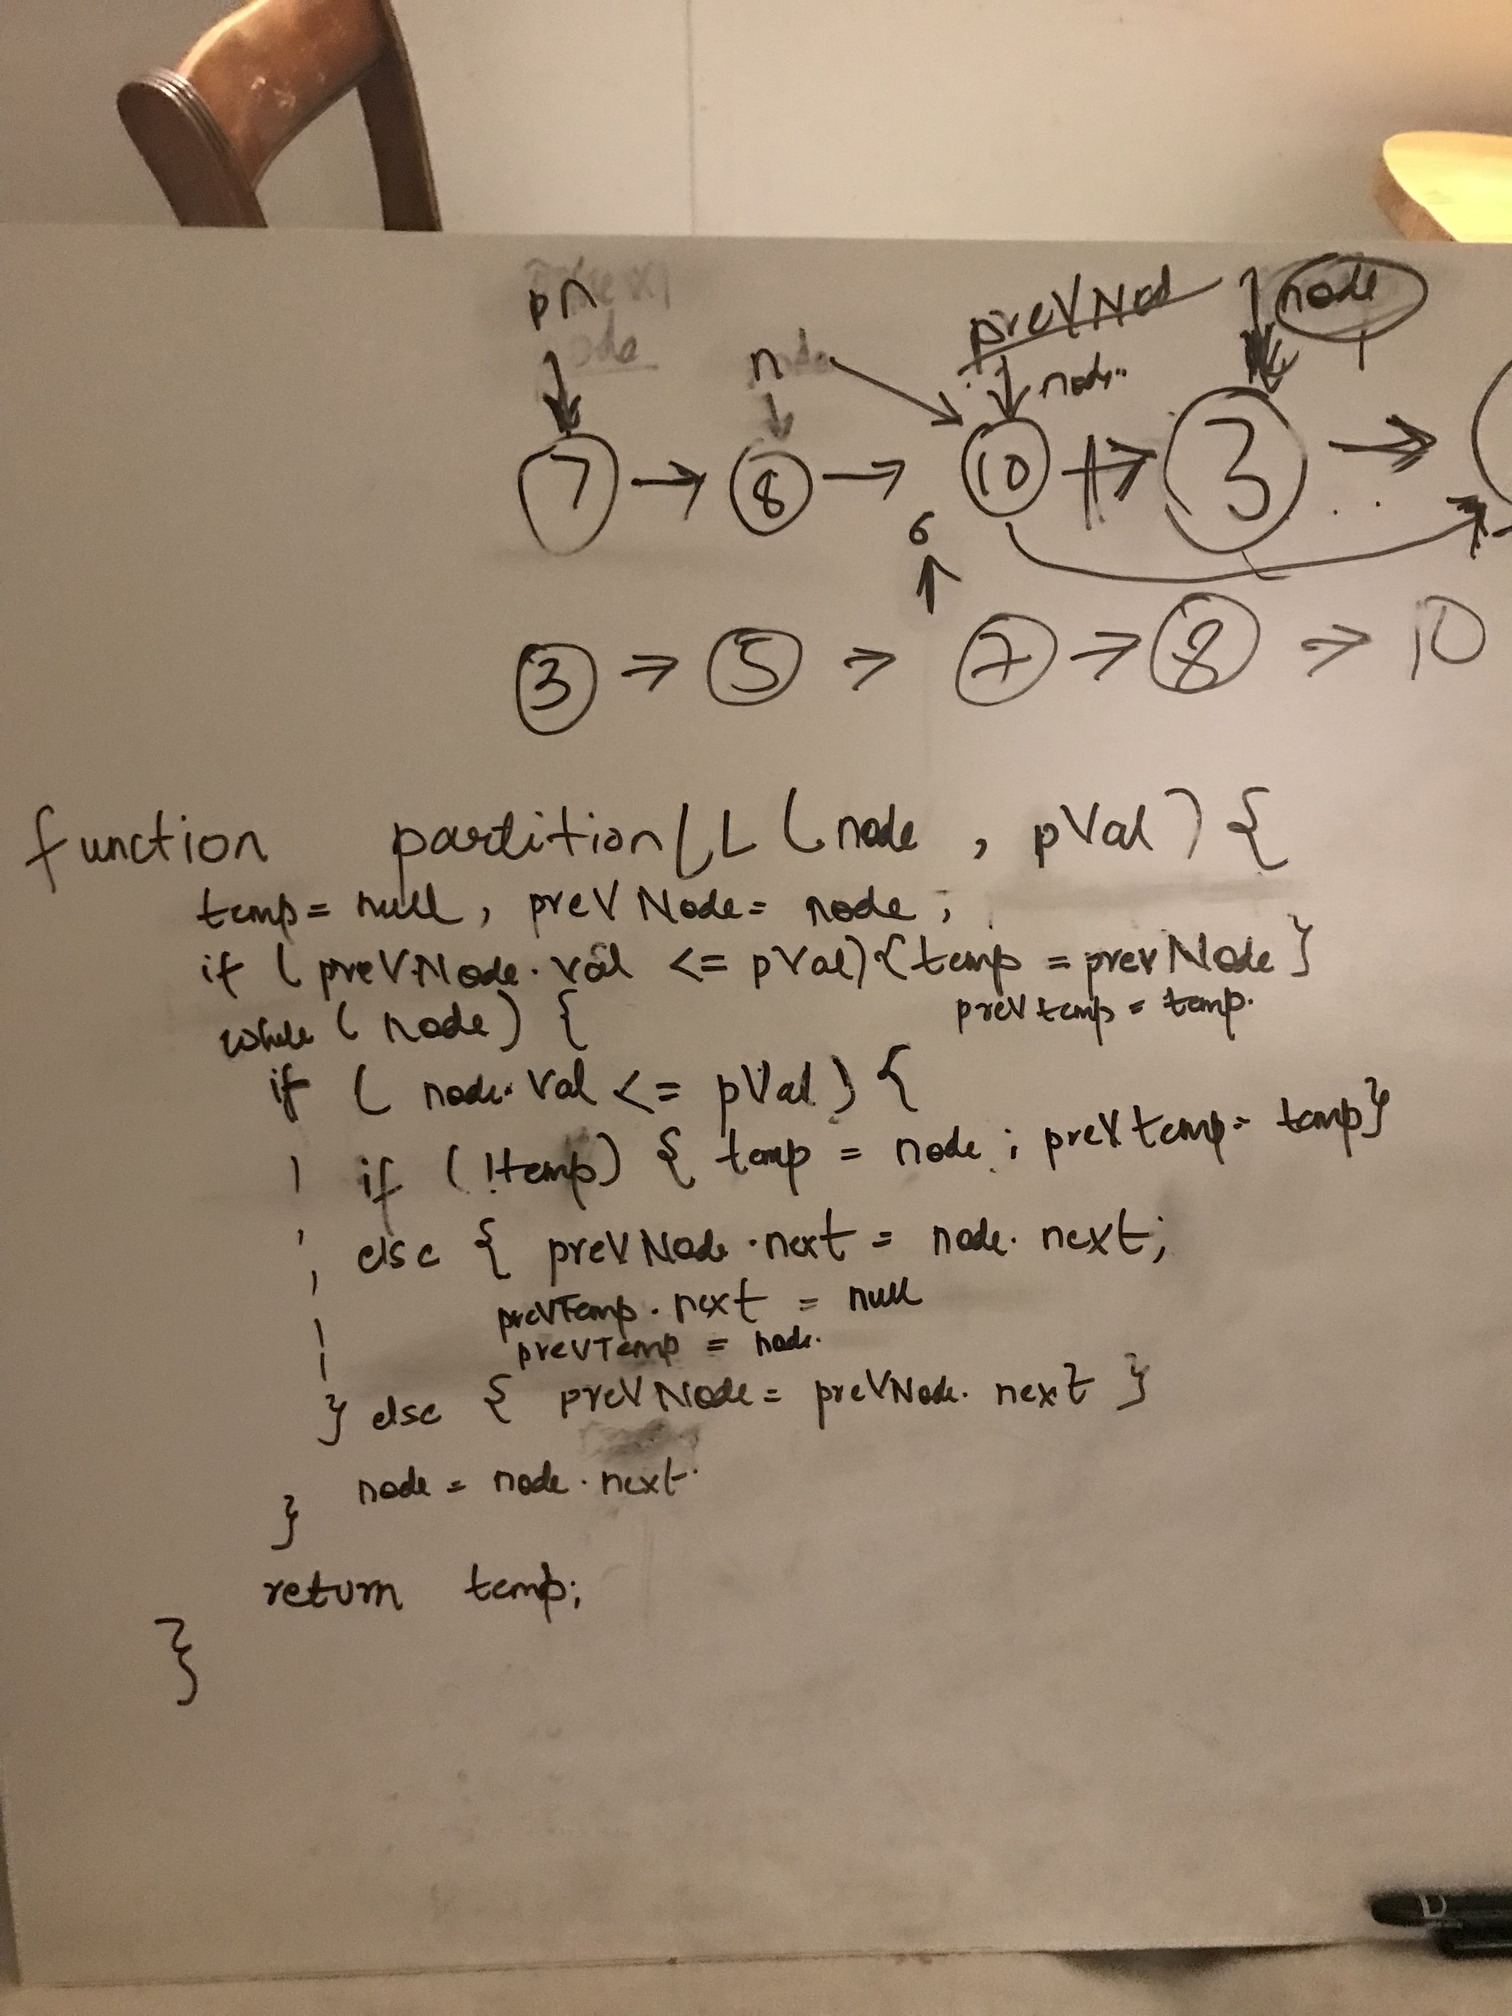 pn
prevNod
node
n
node..
7 → 8 → 10 → 3 →
6
3 → 5 → 7 → 8 → 10
function partitionLL (node, pVal) {
temp = null, prevNode = node;
if (prevNode.val <= pVal) {temp = prevNode}
prevtemp = temp.
while (node) {
if (node.val <= pVal) {
if (!temp) { temp = node; prevtemp = temp}
else { prevNode.next = node.next;
prevTemp.next = null
prevTemp = node.
} else { prevNode = prevNode.next }
node = node.next.
}
return temp;
}